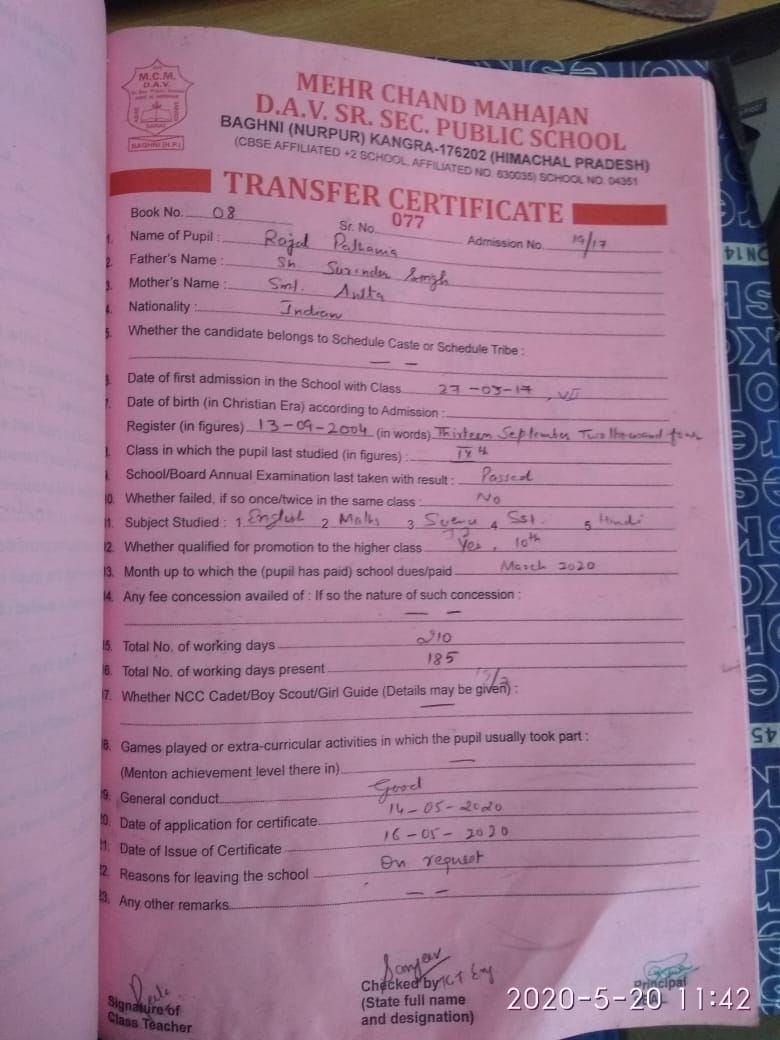 M.C.M.
D.A.V.
BAGHNI (H.P.)
MEHR CHAND MAHAJAN
D.A.V. SR. SEC. PUBLIC SCHOOL
BAGHNI (NURPUR) KANGRA-176202 (HIMACHAL PRADESH)
(CBSE AFFILIATED +2 SCHOOL, AFFILIATED NO. 630035) SCHOOL NO. 04351
TRANSFER CERTIFICATE
Book No. 08 Sr. No. 077 Admission No. 19/17
1. Name of Pupil : Rajal Pathania
2. Father's Name : Sh. Surinder Singh
3. Mother's Name : Smt. Anita
4. Nationality : Indian
5. Whether the candidate belongs to Schedule Caste or Schedule Tribe :
— —
6. Date of first admission in the School with Class 27-03-17, VII
7. Date of birth (in Christian Era) according to Admission :
Register (in figures) 13-09-2004 (in words) Thirteen September Two thousand four
8. Class in which the pupil last studied (in figures) : IXth
9. School/Board Annual Examination last taken with result : Passed
10. Whether failed, if so once/twice in the same class : No
11. Subject Studied : 1 English 2 Maths 3 4 SSt. 5 Hindi
12. Whether qualified for promotion to the higher class Yes, 10th
13. Month up to which the (pupil has paid) school dues/paid March 2020
14. Any fee concession availed of : If so the nature of such concession :
— —
15. Total No. of working days 210
16. Total No. of working days present 185
17. Whether NCC Cadet/Boy Scout/Girl Guide (Details may be given) :
—
18. Games played or extra-curricular activities in which the pupil usually took part :
(Menton achievement level there in) —
19. General conduct Good
20. Date of application for certificate 14-05-2020
21. Date of Issue of Certificate 16-05-2020
22. Reasons for leaving the school On request
23. Any other remarks — —
Signature of
Class Teacher
Sanjeev
Checked by
(State full name
and designation)
Principal
2020-5-20 11:42